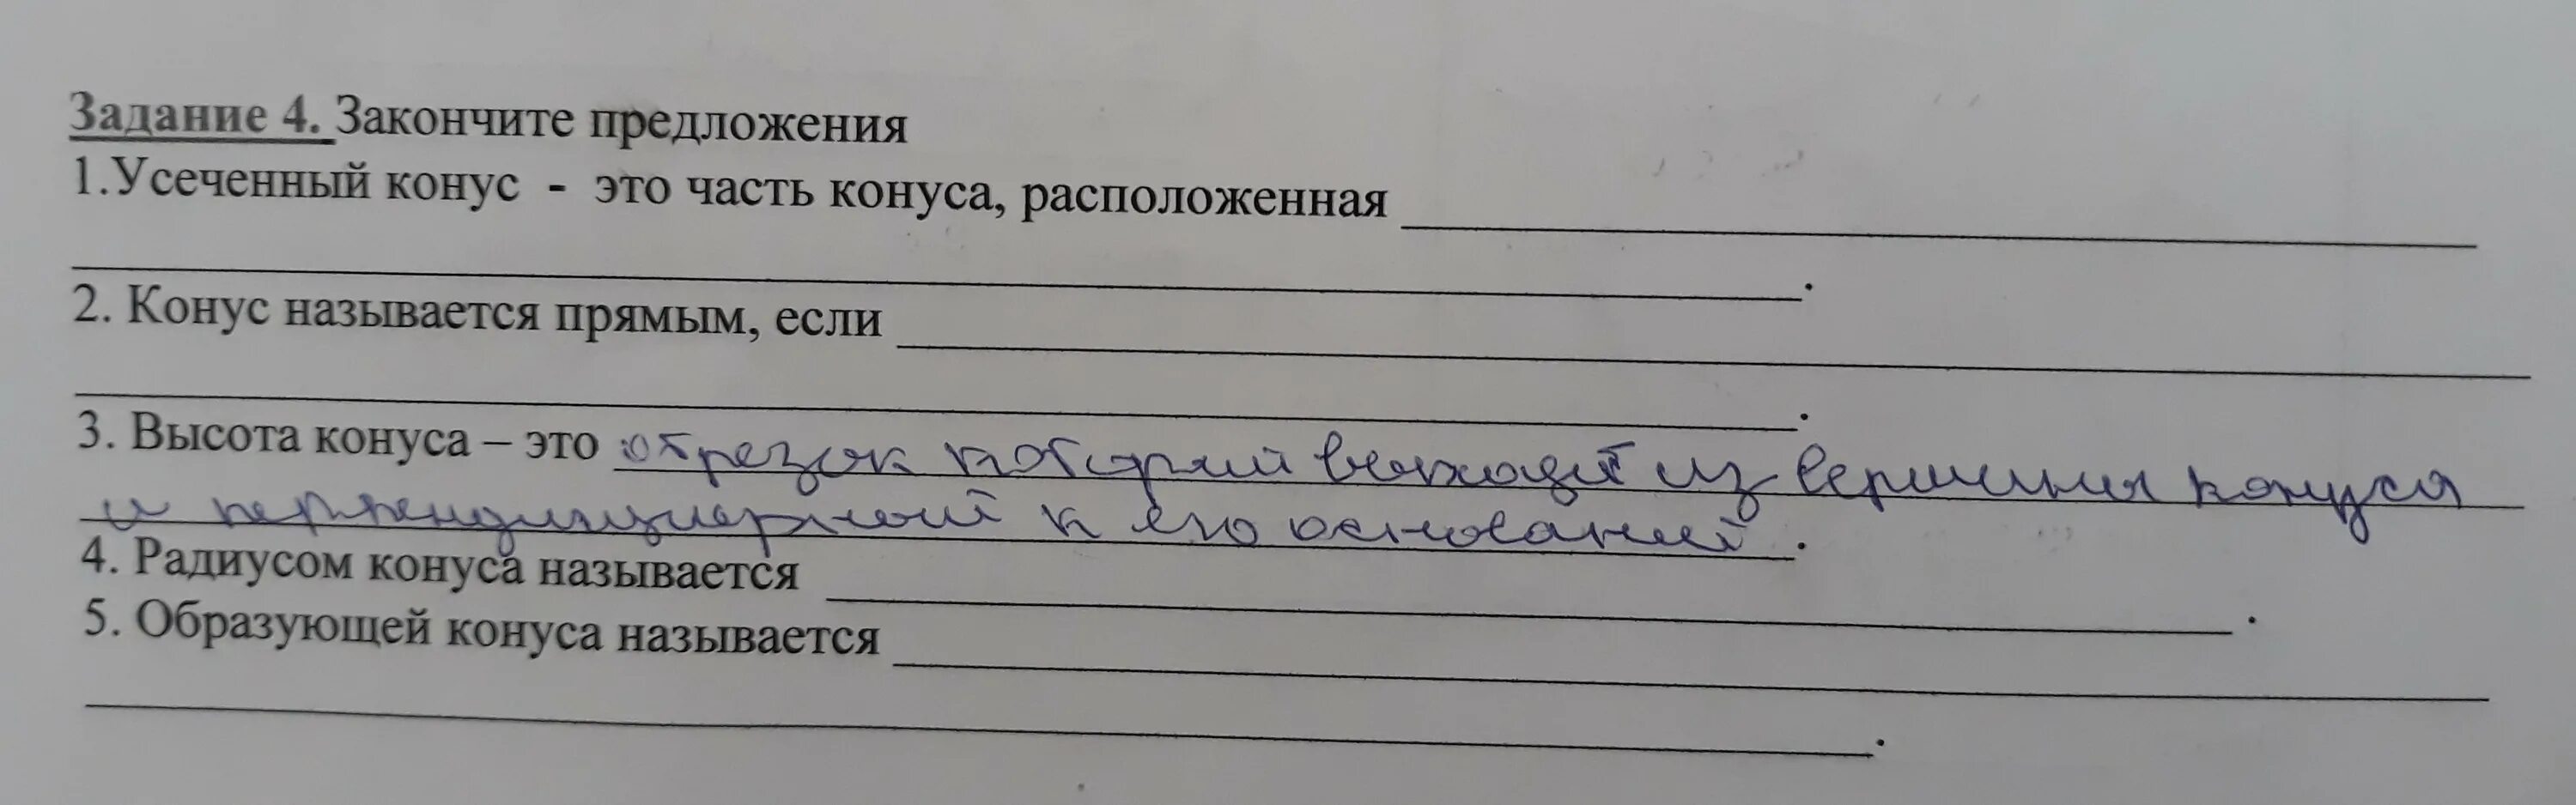 Задание 4. Закончите предложения
1.Усеченный конус - это часть конуса, расположенная
.
2. Конус называется прямым, если
.
3. Высота конуса – это отрезок который выходит из вершины конуса
и перпендикулярный к его оснований.
4. Радиусом конуса называется .
5. Образующей конуса называется
.